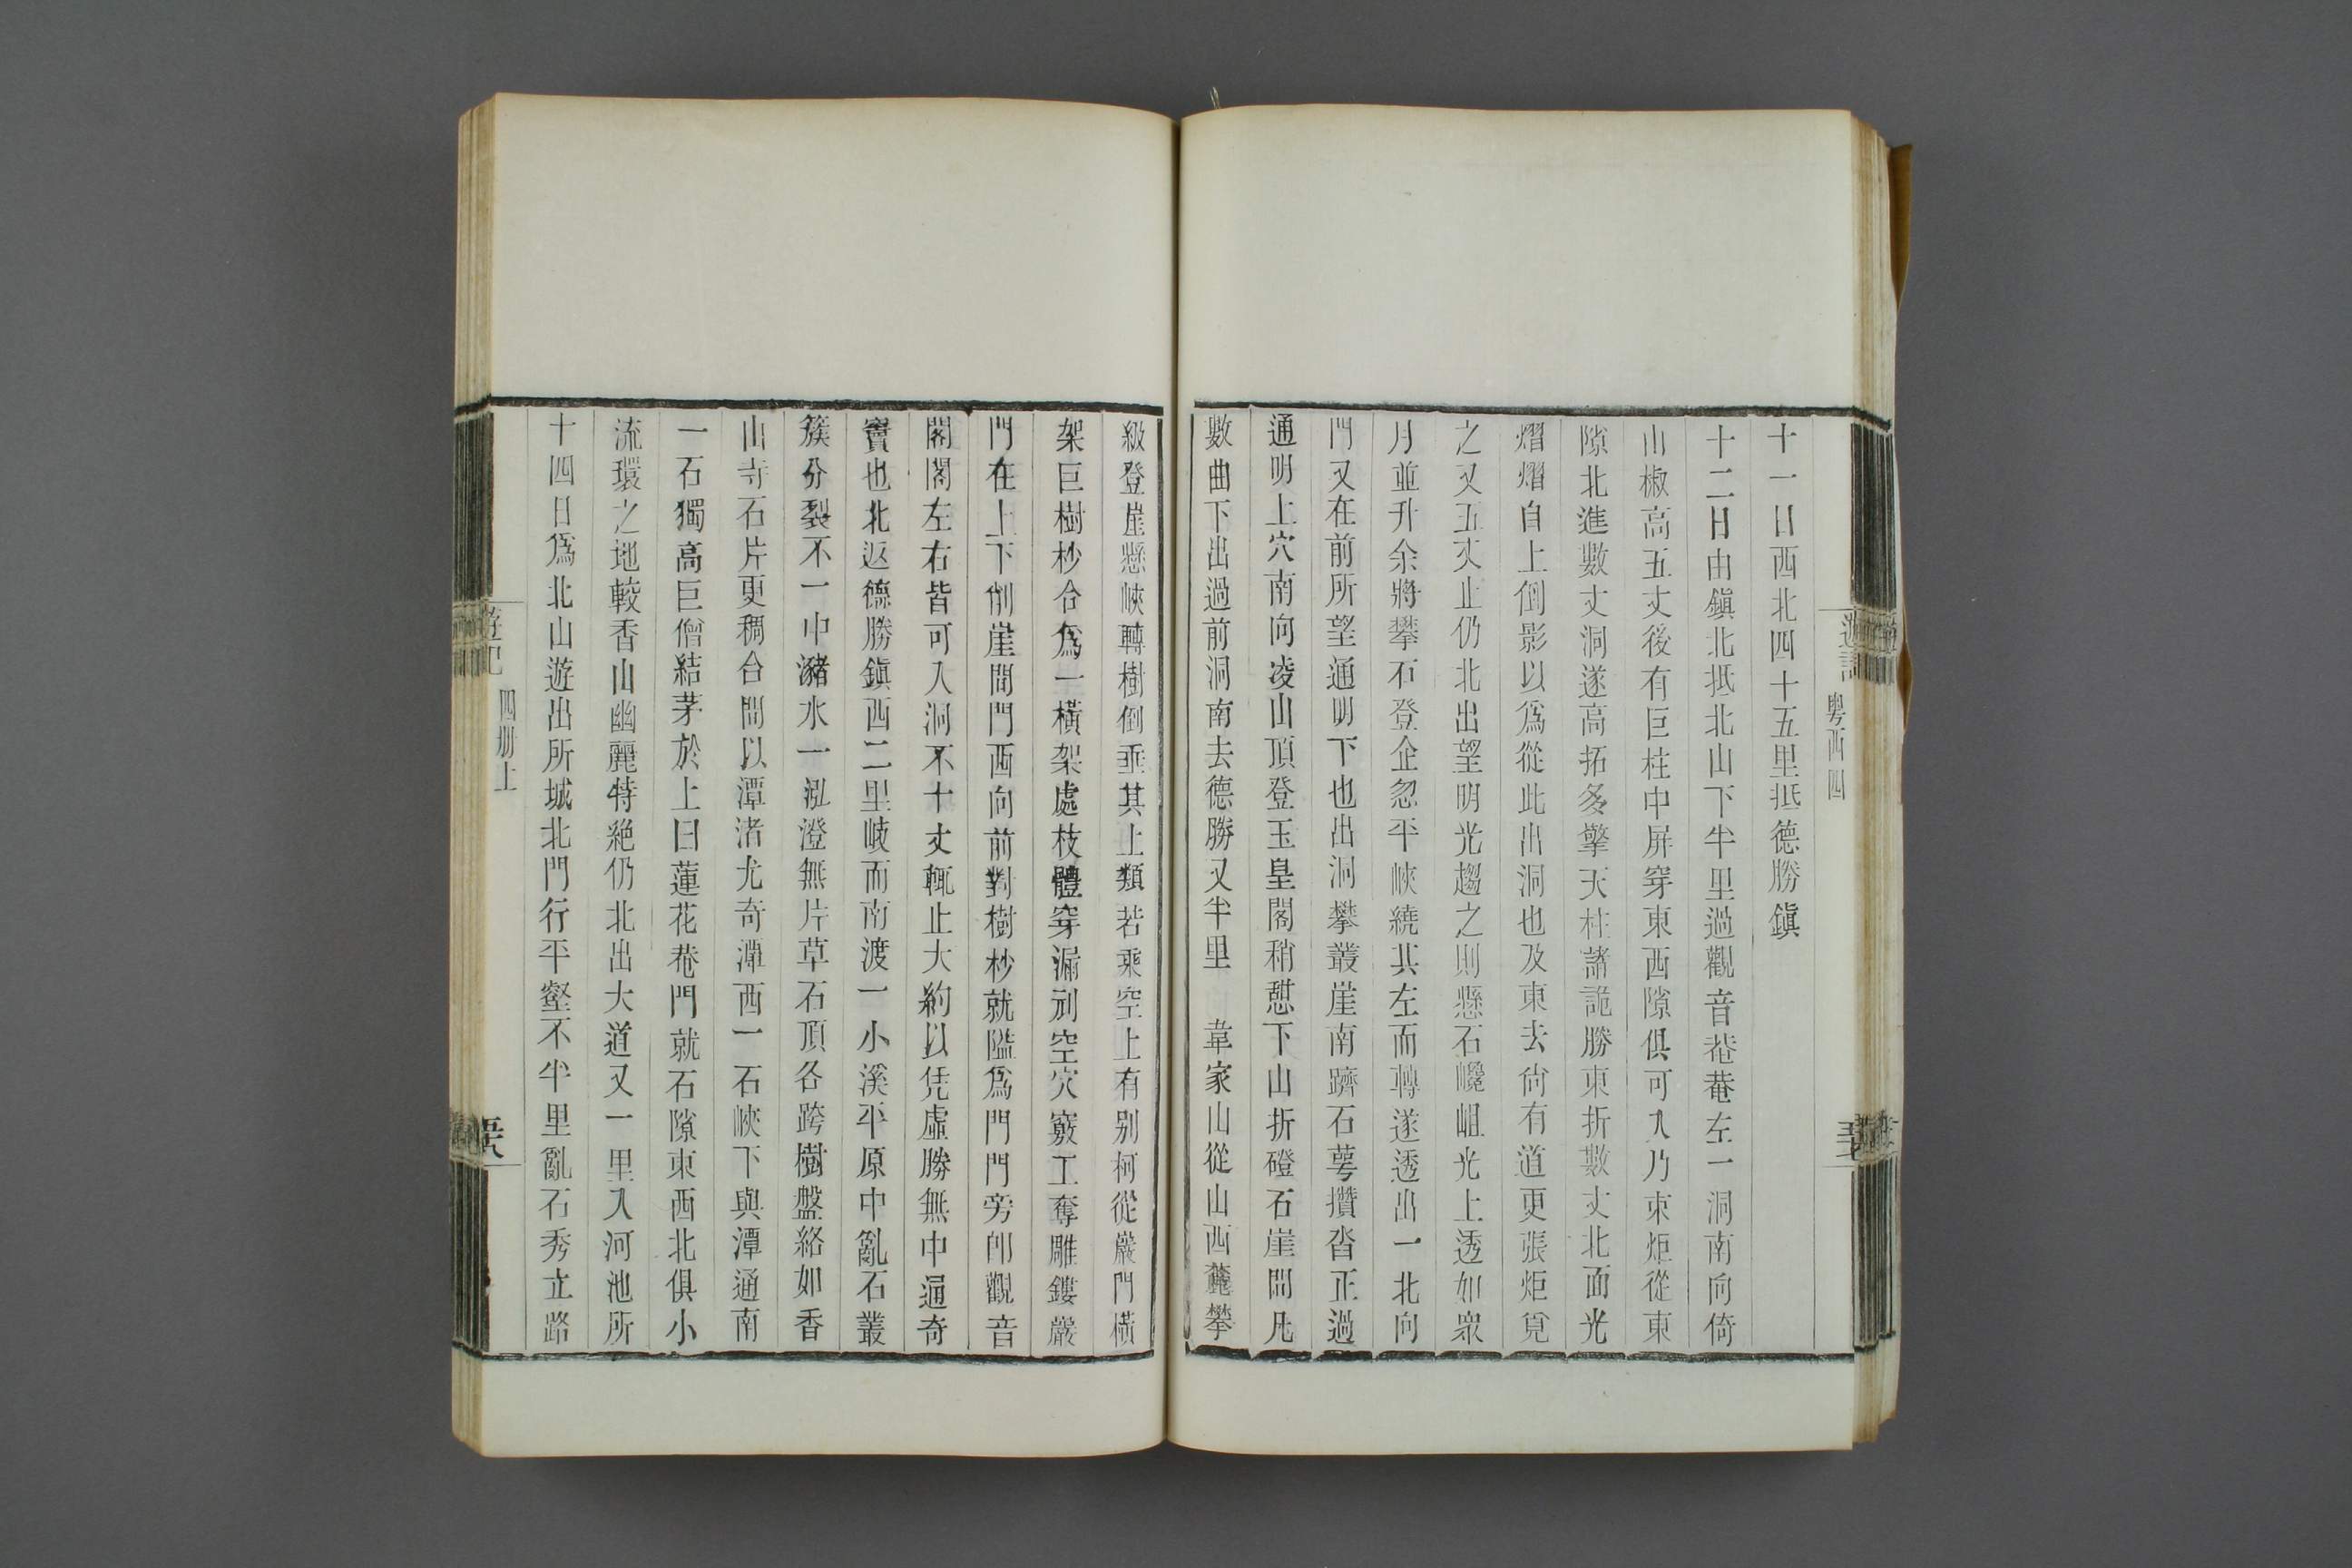 遊記
粤西四
十一日西北四十五里抵德勝鎭
十二日由鎭北抵北山下半里過觀音菴菴左一洞南向倚
山椒高五丈後有巨柱中屏穿東西隙俱可入乃束炬從東
隙北進數丈洞遂高拓多擎天柱諸詭勝東折數丈北面光
熠熠自上倒影以爲從此出洞也及東去尙有道更張炬覓
之又五丈止仍北出望明光趨之則懸石巉岨光上透如衆
月並升余將攀石登企忽平峽繞其左而轉遂透出一北向
門又在前所望通明下也出洞攀叢崖南躋石萼攢沓正過
通明上穴南向凌山頂登玉皇閣稍憇下山折磴石崖間凡
數曲下出過前洞南去德勝又半里　韋家山從山西麓攀
級登崖懸峽轉樹倒垂其上類若乘空上有别柯從巖門横
架巨樹杪合爲一橫架處枝體穿漏刓空穴竅工奪雕鏤巖
門在上下削崖間門西向前對樹杪就隘爲門門旁卽觀音
閣閣左右皆可入洞不十丈輒止大約以凭虛勝無中通奇
竇也北返德勝鎭西二里岐而南渡一小溪平原中亂石叢
簇分裂不一中瀦水一泓澄無片草石頂各跨樹盤絡如香
山寺石片更稠合間以潭渚尤奇潭西一石峽下與潭通南
一石獨高巨僧結茅於上曰蓮花菴門就石隙東西北俱小
流環之地較香山幽麗特絶仍北出大道又一里入河池所
十四日爲北山遊出所城北門行平壑不半里亂石秀立路
遊記
四册上